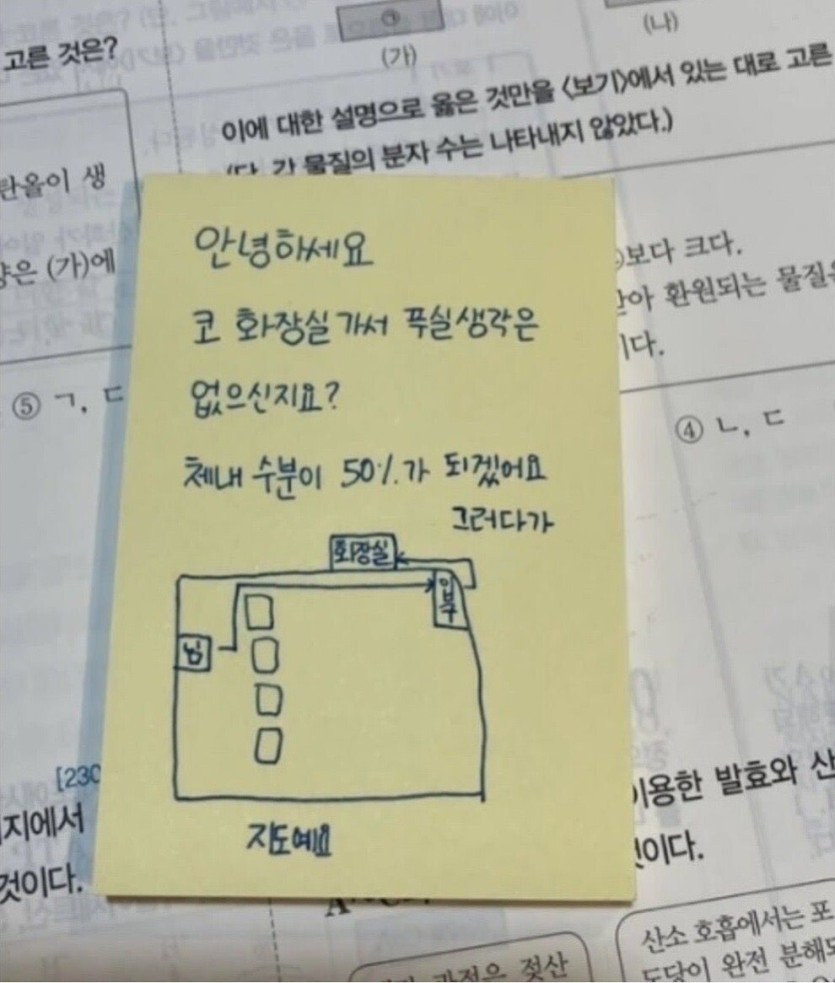 고른 것은?
(가)
(나)
이에 대한 설명으로 옳은 것만을 <보기>에서 있는 대로 고른
(단, 각 물질의 분자 수는 나타내지 않았다.)
탄올이 생
양은 (가)에
보다 크다.
환원되는 물질은
이다.
⑤ ㄱ, ㄷ
④ ㄴ, ㄷ
안녕하세요
코 화장실 가서 푸실생각은
없으신지요?
체내 수분이 50%가 되겠어요
그러다가
화장실
입구
님
지도예요
[230
지에서
것이다.
이용한 발효와 산
것이다.
과정은 젖산
산소 호흡에서는 포
도당이 완전 분해되